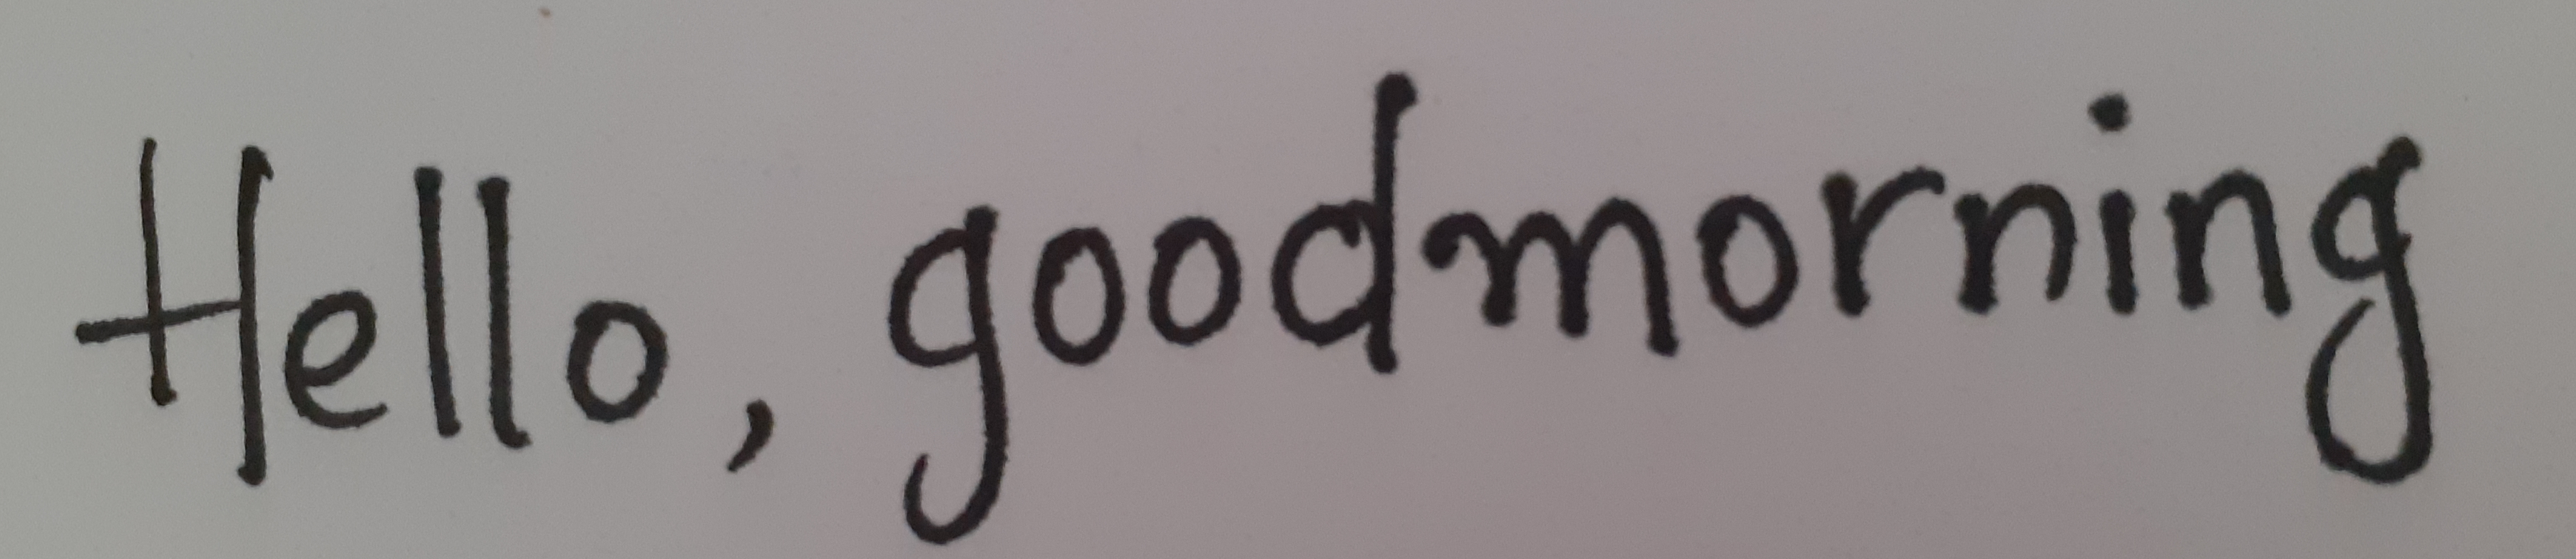 Hello, goodmorning